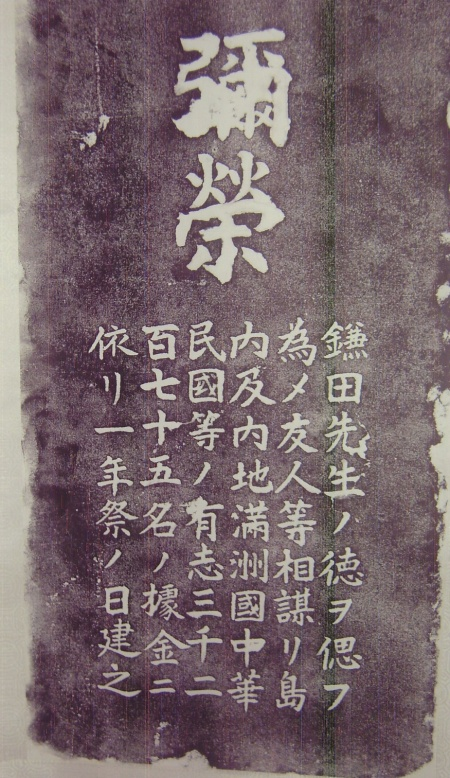 彌榮
鎌田先生ノ徳ヲ偲フ
為メ友人等相謀リ島
内及内地滿洲國中華
民國等ノ有志三千二
百七十五名ノ據金ニ
依リ一年祭ノ日建之